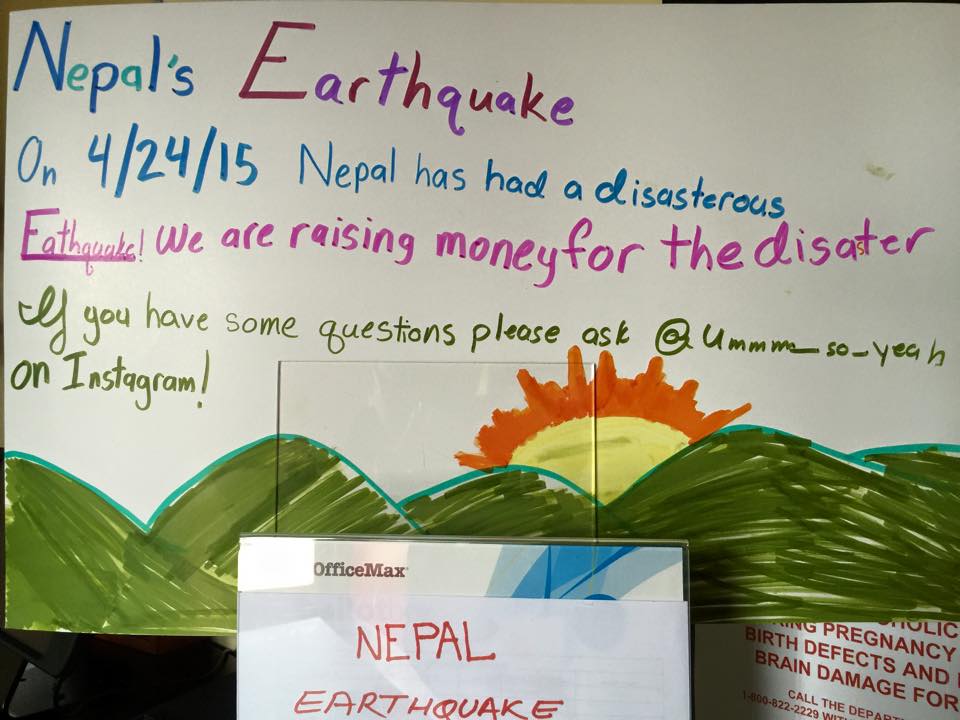 Nepal's Earthquake
On 4/24/15 Nepal has had a disasterous
Eathquake! We are raising money for the disaster
If you have some questions please ask @Ummm_so_yeah
on Instagram!
OfficeMax
NEPAL
EARTHQUAKE
PREGNANCY
BIRTH DEFECTS AND
BRAIN DAMAGE FOR
CALL THE
1-800-822-2229